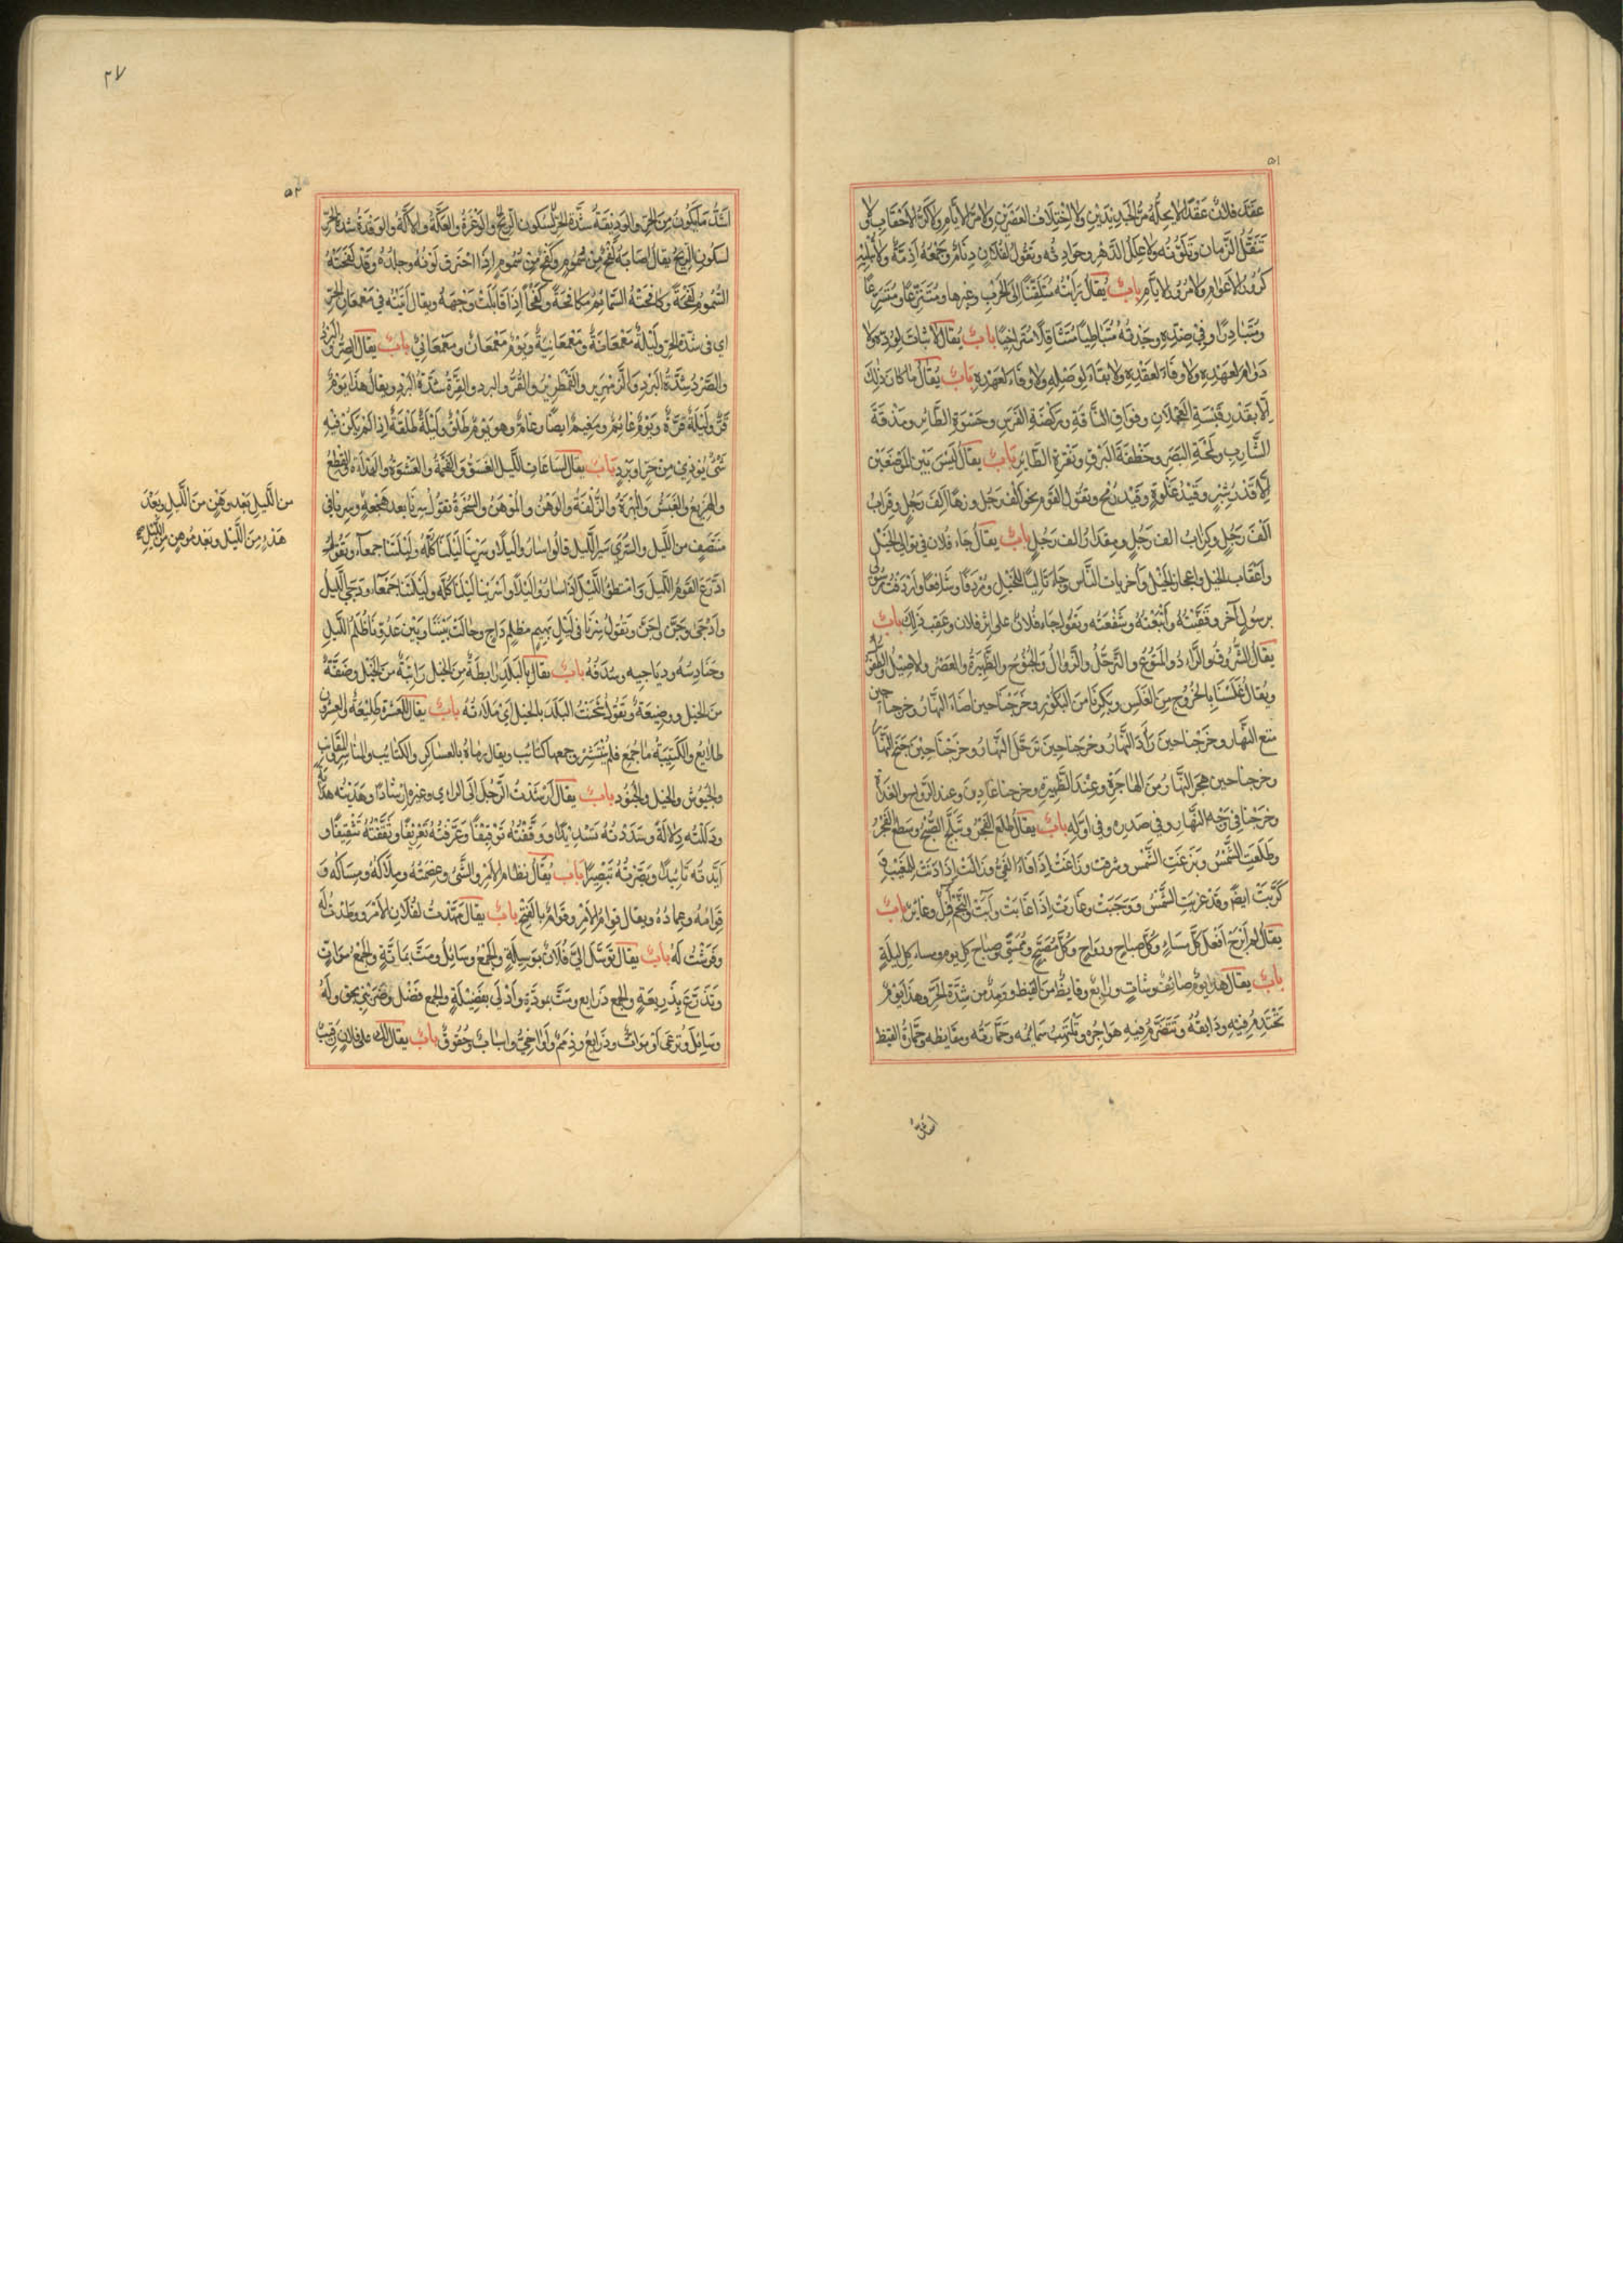 ٥١
عقد فلان عقدا لا يحله مر الجديدين ولا اختلاف العصرين ولا مر الايام ولا كر الاحقاب ولا
تنقل الزمان وتلونه ولا علل الدهر وحوادثه وتقول لفلان ذمام وجمعه اذمة ولا
كرور الاعوام ولا مرور الايام باب يقال رأيته متلقتا الى الحرب وغيرها ومتترعا ومتسرعا
ومتبادرا وفي ضده وجدته متباطيا متثاقلا متراخيا باب يقال لا ثبات لوده ولا
دوام لعهده ولا وفاء لعقده ولا بقاء لوصله ولا وفاء لعهده باب يقال ما كان ذلك
الا بقدر قبسة العجلان وفواق الناقة وركضة الفرس وحسوة الطائر ومذقة
الشارب ولمحة البصر وخطفة البرق ونغرة الطاير باب يقال ليس بين الموضعين
الا قدر شبر وقيد غلوة وقيد رمح وتقول القوم نحو الف رجل وزهاء الف رجل وقراب
الف رجل وكراب الف رجل ومقدار الف رجل باب يقال جاء فلان في توالي الخيل
واعقاب الخيل واعجاز الخيل واخريات الناس وجاء تاليا للخيل ومردفا وشافعا واردفت رسولي
برسول آخر وقفيته واتبعته وشفعته وتقول جاء فلان على اثر فلان وعقب ذلك باب
يقال الشروق والراد والمتوع والترجل والزوال والجنوح والظهيرة والعصر والاصيل والطفل
ويقال غلسنا بالخروج من الغلس وبكرنا من البكور وخرجنا حين اضاء النهار وخرجنا حين
متع النهار وخرجنا حين رأد النهار وخرجنا حين ترجل النهار وخرجنا حين جنح النهار
وخرجنا حين هجر النهار من الهاجرة وعند الظهيرة وخرجنا غادين وعند الرواح والغداة
وخرجنا في وجه النهار وفي صدره وفي اوله باب يقال طلع الفجر وتبلج الصبح وسطع الفجر
وطلعت الشمس وبزغت الشمس وشرقت وزاغت اذا فاء الفيء وزالت اذا دنت للمغيب و
كربت ايضا وقد غربت الشمس ووجبت وغارت اذا غابت وآبت والنجم آفل وغاير باب
يقال لم ابرح افعل كل مساء وكل صباح ورواح وكل مصبح وممسى وصباح كل يوم ومساء كل ليلة
باب يقال هذا يوم صائف وشات ورابع وقايظ من القيظ وومد من شدة الحر وهذا يوم
تحتدم فيه ودايقه وتتضرم فيه هواجره وتلتهب سمايمه وحمارته ومقايظه وحمارة القيظ
اشد
٢٧
٥٢
اشد ما يكون من الحر والوديقة شدة الحر لسكون الريح والوغرة والعكة والاكة والوقدة شدة الحر
لسكون الريح يقال اصابه لفح من سموم وكفح من سموم اذا احترق لونه وجلده وقد لفحته
السموم لفحة وكافحته السمائم مكافحة وكفحا اذا قابلت وجهه ويقال اتيته في معمعان الحر
اي في شدة الحر وليلة معمعانة ومعمعانية ويوم معمعان ومعمعاني باب يقال الصر والبرد
والصرد شدة البرد والزمهرير والقمطرير والقر والبرد والقرة شدة البرد ويقال هذا يوم
قر وليلة قرة ويوم غائم ومغيم ايضا وغام وهو يوم طلق وليلة طلقة اذا لم يكن فيه
شئ يوذي من حر او برد باب يقال لساعات الليل الغسق والفحمة والعشوة والهدأة والقطع
والهزيع والغبش والبهرة والزلفة والوهن والموهن والسحرة تقول سرنا بعد هجعة وسرنا في
منتصف من الليل والسرى سير الليل قالوا ساروا ليلا وسرينا ليلتنا كله وليلتنا جمعاء وتقول
ادرع القوم الليل وامتطوا الليل اذا ساروا ليلا واسرينا ليلنا كله وليلتنا جمعاء ودجى الليل
وادجى وجن واجن وتقول سرنا في ليل بهيم مظلم داج وحالت بيننا وبين عدونا ظلم الليل
وحنادسه ودياجيه وسدفه باب يقال بالبلد رابطة من الخيل راتبة من الخيل وضفة
من الخيل ووضيعة وتقول شحنت البلد بالخيل اي ملاءته باب يقال للعشرة طليعة والعشرين
طلايع والكتيبة ما جمع فلم ينتشر وجمعها كتايب ويقال رماه بالعساكر والكتايب والمناسر والمقانب
والجيوش والخيل والجنود باب يقال ارشدت الرجل الى الراي وغيره ارشادا وهديته هداية
ودللته دلالة وسددته تسديدا ووقفته توقيفا وعرفته تعريفا وثقفته تثقيفا و
ايدته تاييدا وبصرته تبصيرا باب يقال نظام الامر والشئ وعصمته وملاكه ومساكه و
قوامه وعماده ويقال قوام الامر وقوام بالفتح باب يقال مهدت لفلان الامر ووطدت له
وفرشت له باب يقال توسل الي فلان بوسيلة والجمع وسائل ومت بماتة والجمع موات
وتذرع بذريعة والجمع ذرايع ومت بمودة وادلى بفضيلة والجمع فضل وضربني بحق وله
وسائل ترعى او موات وذرايع وذمم واواخي واسباب وحقوق باب يقال لك على فلان رقيب
من الليل بعد وهن من الليل وبعد
هدء من الليل وبعد موهن من الليل صح